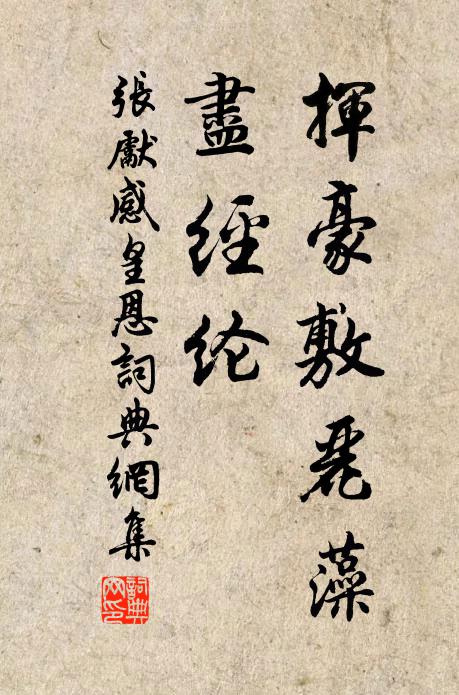 揮豪敷麗藻
盡經纶
張獻感皇恩詞典網集
詞典网印